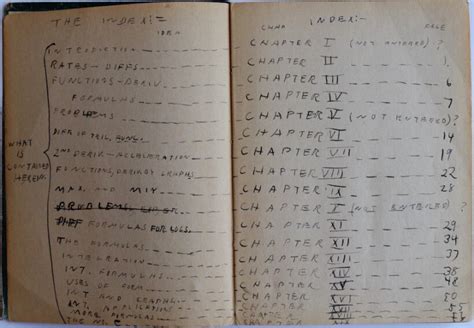 THE INDEX:=
IDEA
INTRODUCTION
RATES - DIFFS
FUNCTIONS - DERIV.
FORMULAS
PROBLEMS
DIFF OF TRIG. FUNC.
2ND DERIV - ACCELERATION
FUNCTIONS, DERIVS, GRAPHS
MAX. AND MIN.
PROBLEMS.
DIFF FORMULAS FOR LOGS.
THE FORMULAS
INTEGRATION
INT. FORMULAS
USES OF
INT. AND GRAPHS
INT. APPLICATIONS
MORE FORMULAS
THE
WHAT
IS
CONTAINED
HEREIN.
CHAP INDEX:- PAGE
CHAPTER I (NOT ENTERED) ?
CHAPTER II 1
CHAPTER III 6
CHAPTER IV 7
CHAPTER V (NOT ENTERED) ?
CHAPTER VI 14
CHAPTER VII 19
CHAPTER VIII 22
CHAPTER IX 28
CHAPTER X (NOT ENTERED) ?
CHAPTER XI 29
CHAPTER XII 34
CHAPTER XIII 37
CHAPTER XIV 38
CHAPTER XV 48
CHAPTER XVI 50
CHAPTER XVII
CHAPTER